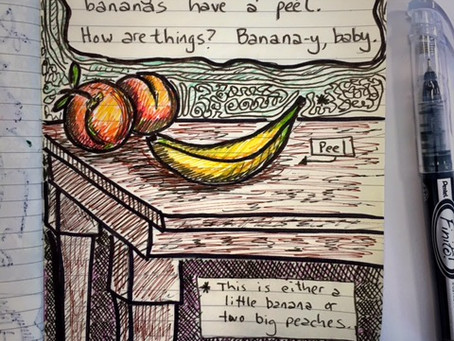 bananas have a peel.
How are things? Banana-y, baby.
*
Peel
* This is either a
little banana or
two big peaches..
Pentel
Finito!